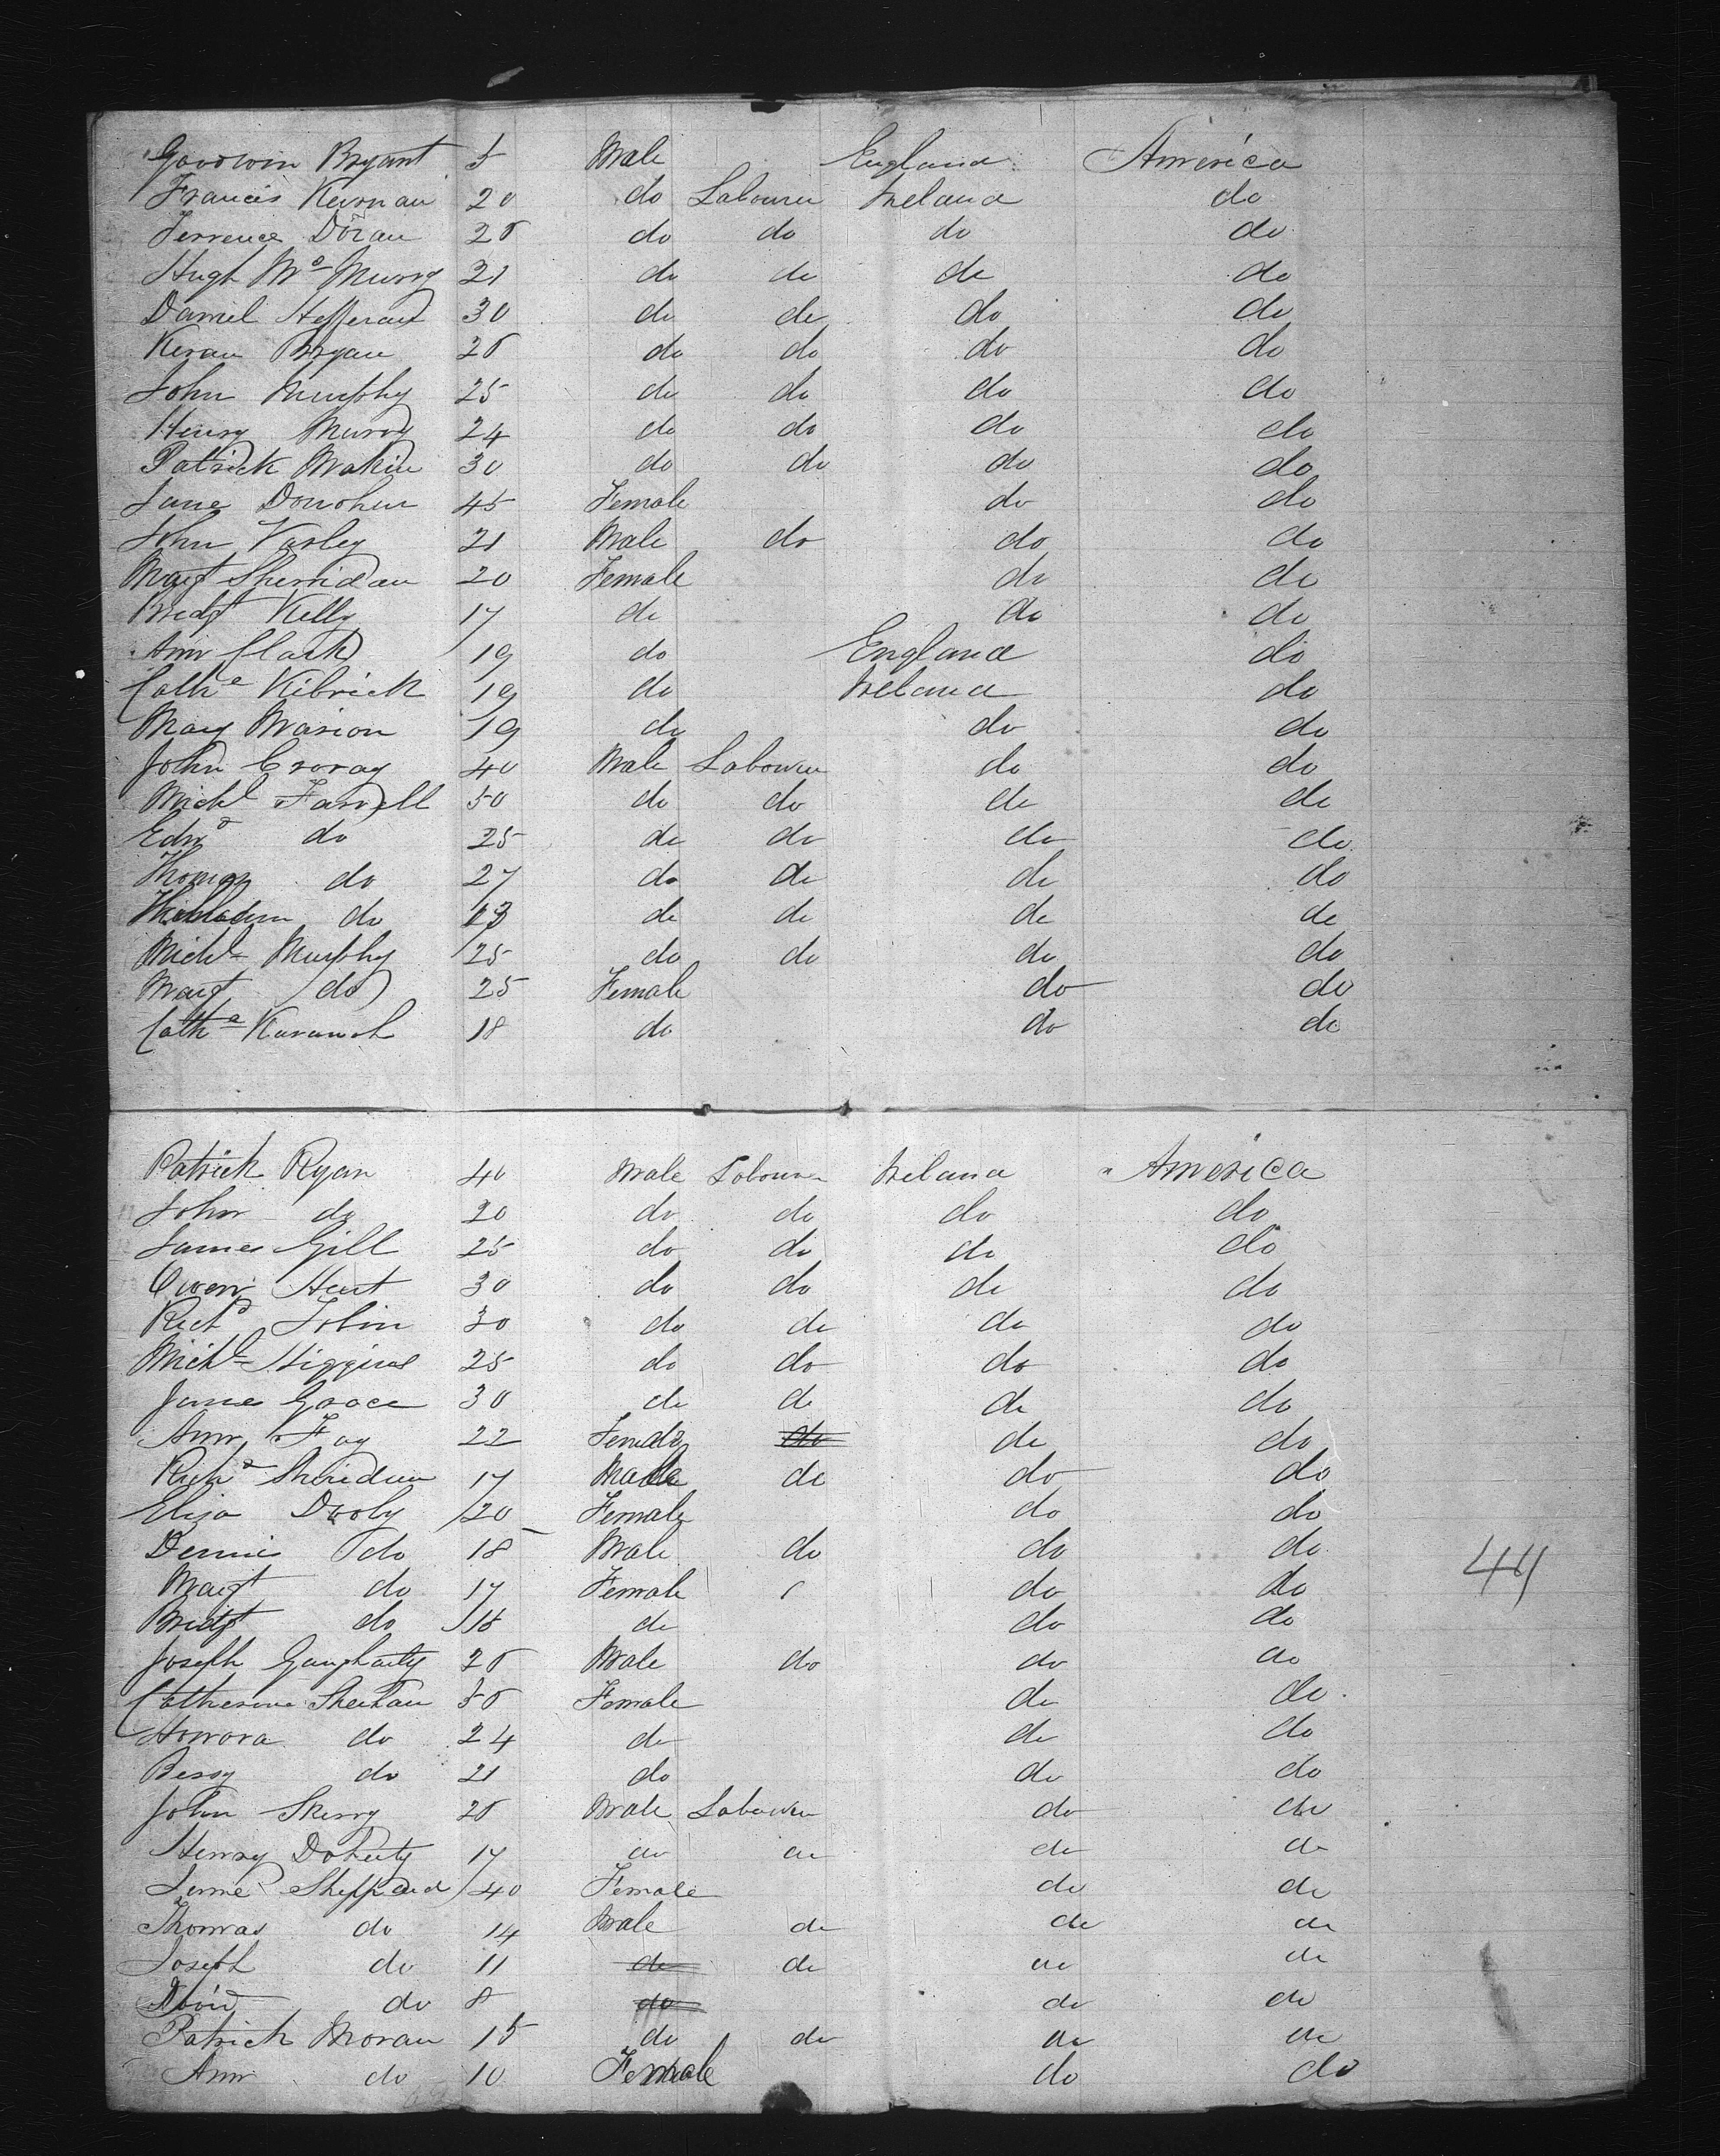 Goodwin Bryant 5 Male England America
Francis Kernan 20 do Labourer Ireland do
Terrence Doran 28 do do do do
Hugh Mc Murry 21 do do do do
Daniel Hefferan 30 do do do do
Keran Bryan 28 do do do do
John Murphy 25 do do do do
Henry Murry 24 do do do do
Patrick Makin 30 do do do do
Jane Donohue 45 Female do do
John Varley 21 Male do do do
Margt Sherridan 20 Female do do
Bridgt Kelly 17 do do do
Ann Clark 19 do England do
Cathe Kibrick 19 do Ireland do
Mary Marion 19 do do do
John Croray 40 Male Labourer do do
Michl Farrell 50 do do do do
Edwd do 25 do do do do
Thomas do 27 do do do do
do 13 do do do do
Michl Murphy 25 do do do do
Margt do 25 Female do do
Cathe Kavanah 18 do do do
Patrick Ryan 40 Male Labourer Ireland America
John do 20 do do do do
James Gill 25 do do do do
Owen Hart 30 do do do do
Richd Tobin 30 do do do do
Michl Higgins 25 do do do do
James Grace 30 do do do do
Ann Fay 22 Female do do do
Richd Sheridan 17 Male do do do
Eliza Dooly 20 Female do do
Dennis do 18 Male do do do
Margt do 17 Female do do
Bridgt do 18 do do do
Joseph Gaugharty 28 Male do do do
Catherine Sheehan 58 Female do do
Honora do 24 do do do
Bessy do 21 do do do
John Skerry 28 Male Labourer do do
Henry Doherty 17 do do do do
Jane Sheppard 40 Female do do
Thomas do 14 Male do do do
Joseph do 11 do do do do
David do 8 do do do
Patrick Moran 15 do do do do
Ann do 10 Female do do